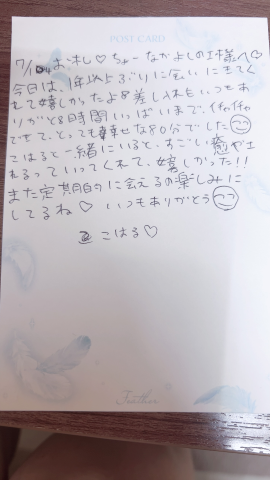 POST CARD
7/1 お礼♡ ちゅーなかよしのI様へ♡
今日は、1年以上ぶりに会いにきてく
れて嬉しかったよ♡差し入れもいつもあ
りがと♡時間いっぱいまで、イチャイチャ
できて、とっても幸せな80分でした
こはると一緒にいると、すごい癒やさ
れるっていってくれて、嬉しかった!!
また定期的に会えるの楽しみに
してるね♡ いつもありがとう
こはる♡
Feather